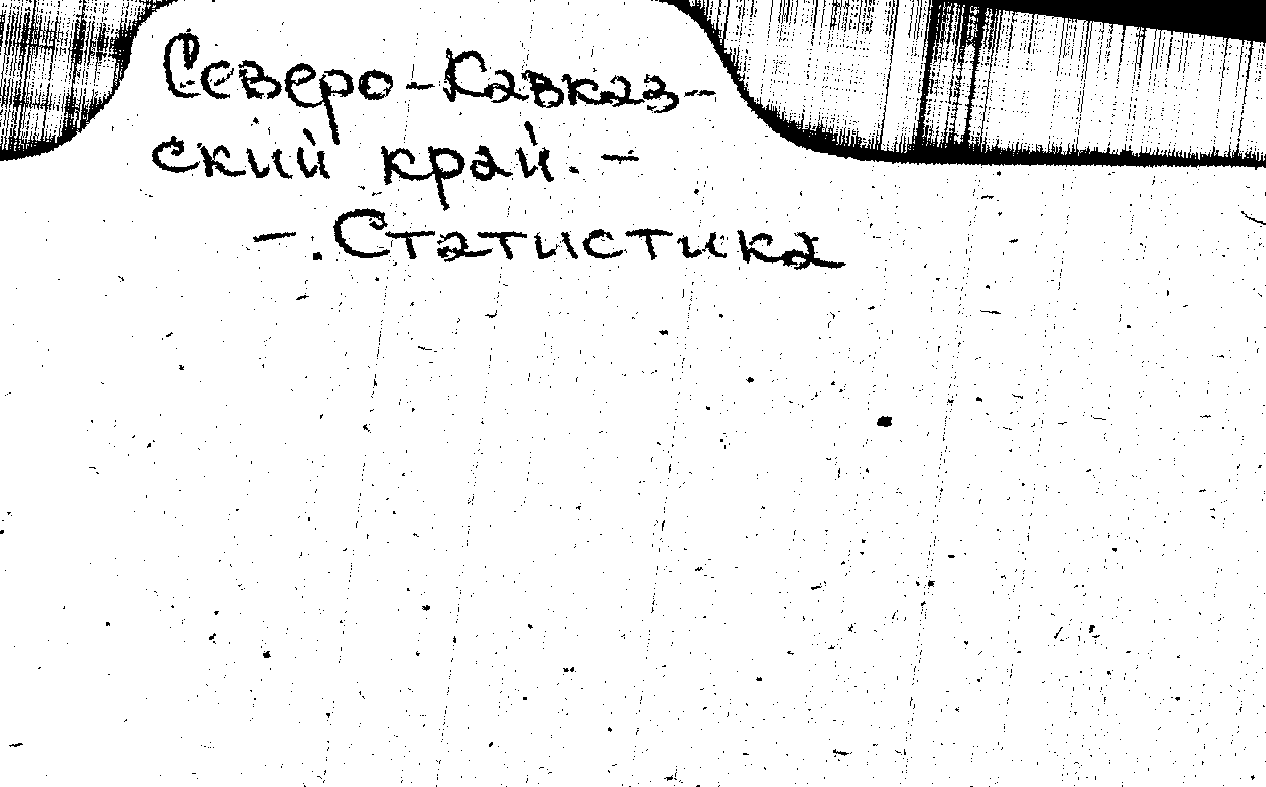 Северо-Кавказ-
ский край. -
-. Статистика